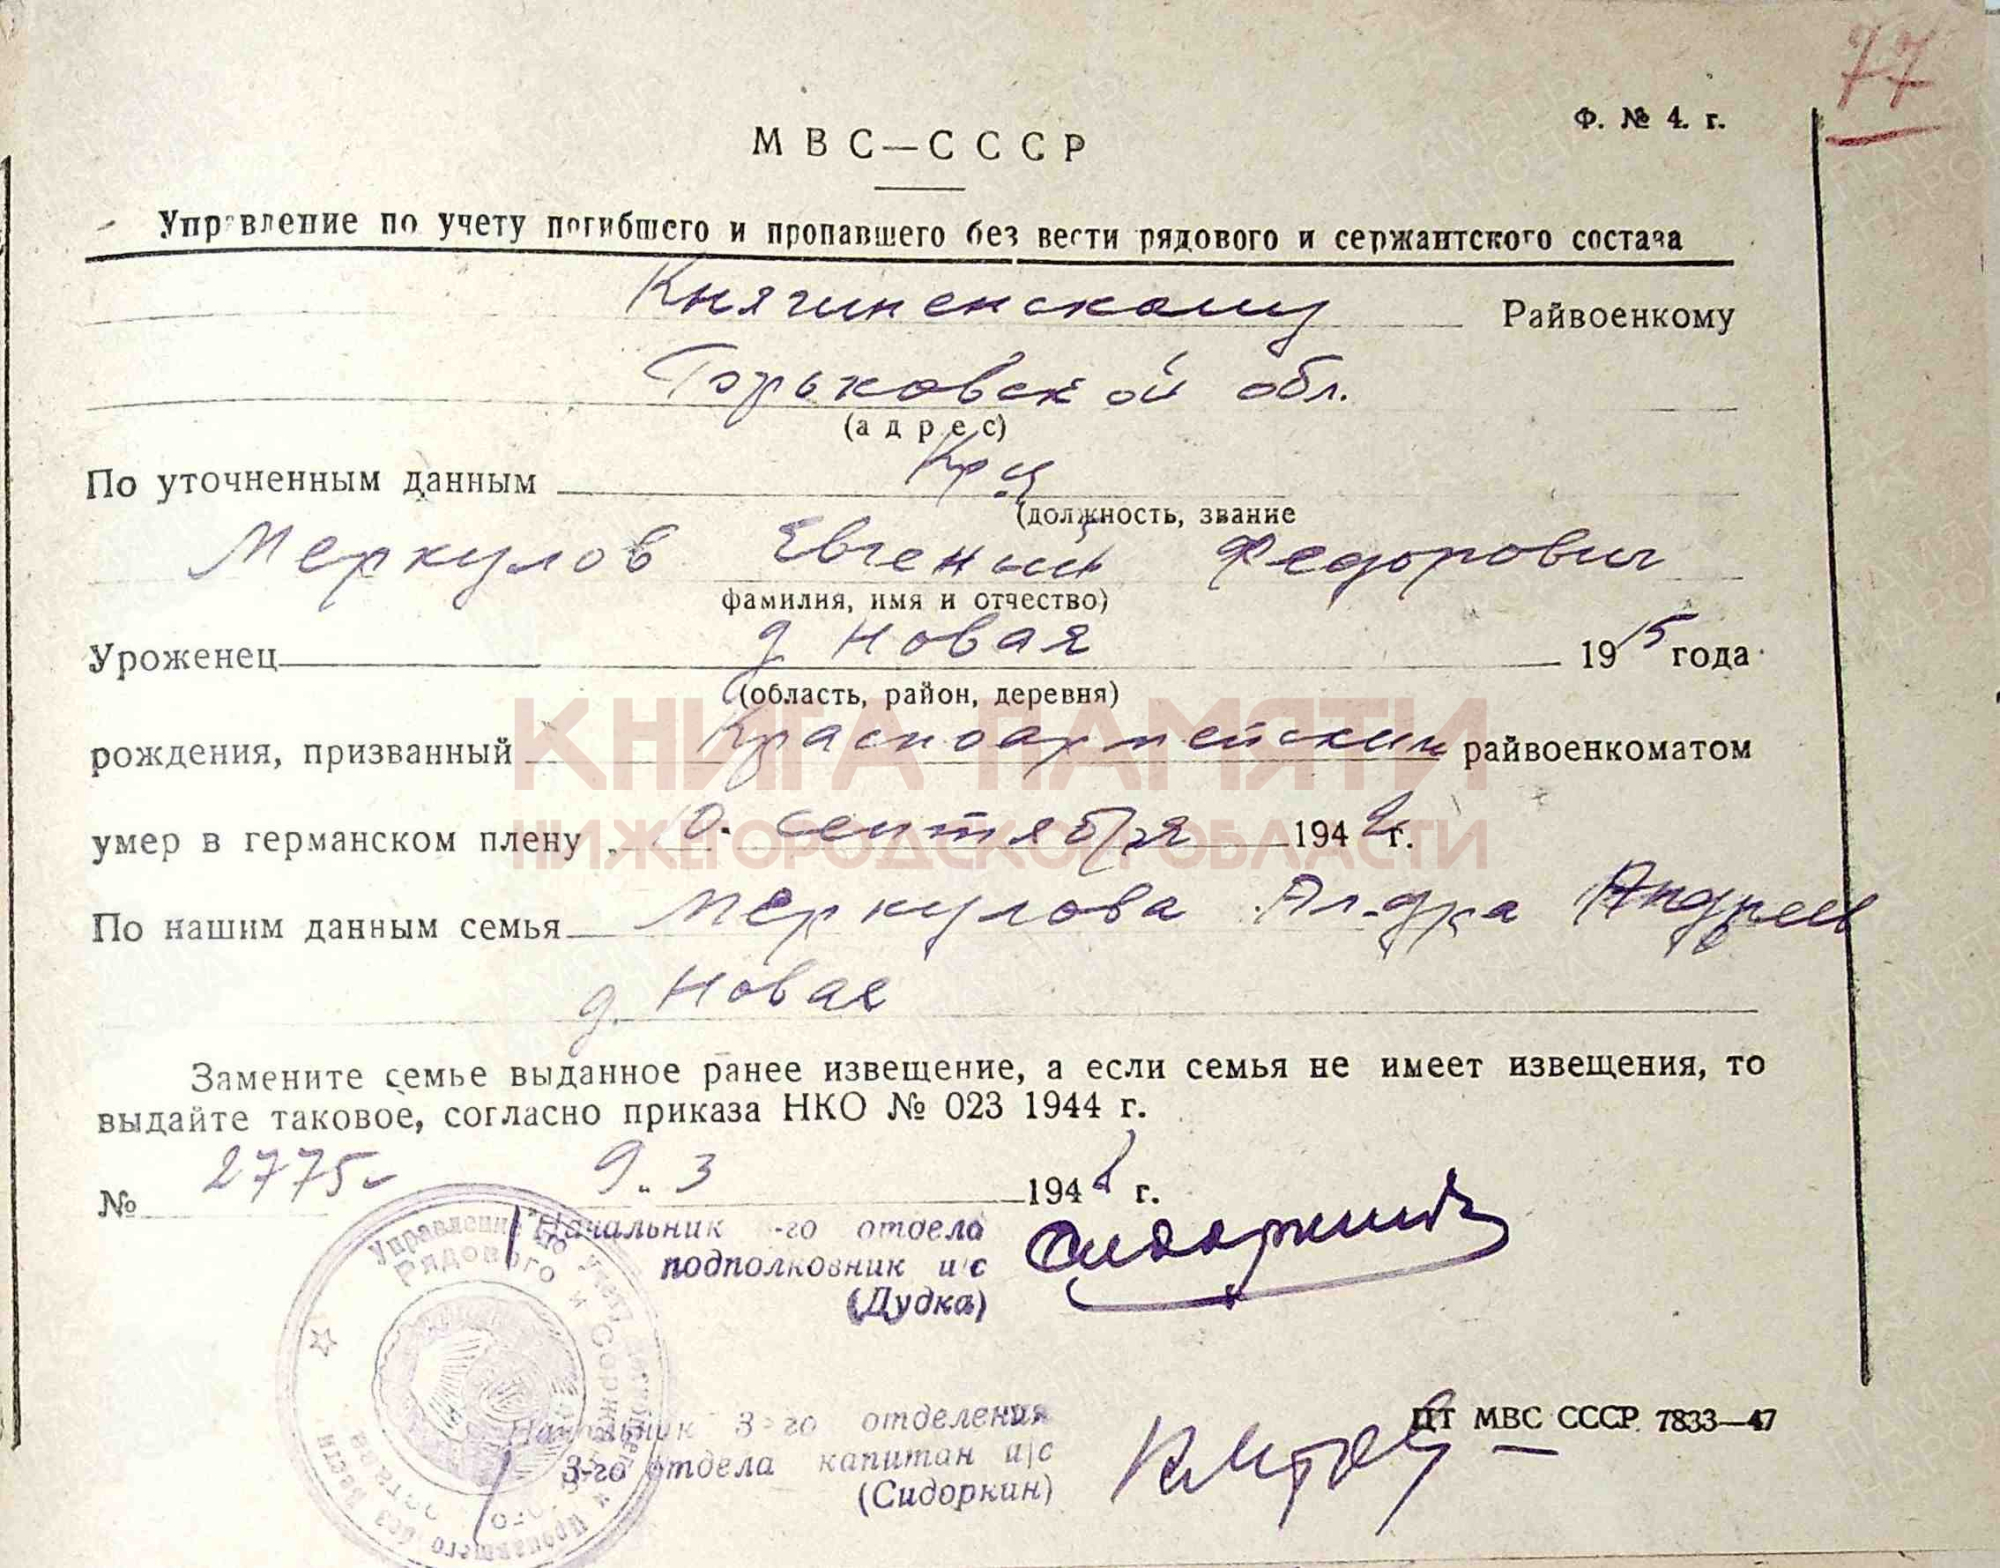 77
Ф. № 4. г.
МВС—СССР
Управление по учету погибшего и пропавшего без вести рядового и сержантского состава
Княгиненскому Райвоенкому
Горьковской обл.
(адрес)
По уточненным данным Кр-ц
(должность, звание
Меркулов Евгений Федорович
фамилия, имя и отчество)
Уроженец д Новая 1915 года
(область, район, деревня)
рождения, призванный Красноармейским райвоенкоматом
умер в германском плену 10. сентября 1942 г.
По нашим данным семья Меркулова Ал-дра Андреев
д. Новая
Замените семье выданное ранее извещение, а если семья не имеет извещения, то
выдайте таковое, согласно приказа НКО № 023 1944 г.
№ 2775 9. 3 1948 г.
Начальник -го отдела
подполковник и/с
(Дудка)
Начальник 3-го отделения
3-го отдела капитан и/с
(Сидоркин)
ЦТ МВС СССР 7833—47
Управление по учету погибшего и пропавшего без вести
рядового и сержантского состава
КНИГА ПАМЯТИ
НИЖЕГОРОДСКОЙ ОБЛАСТИ